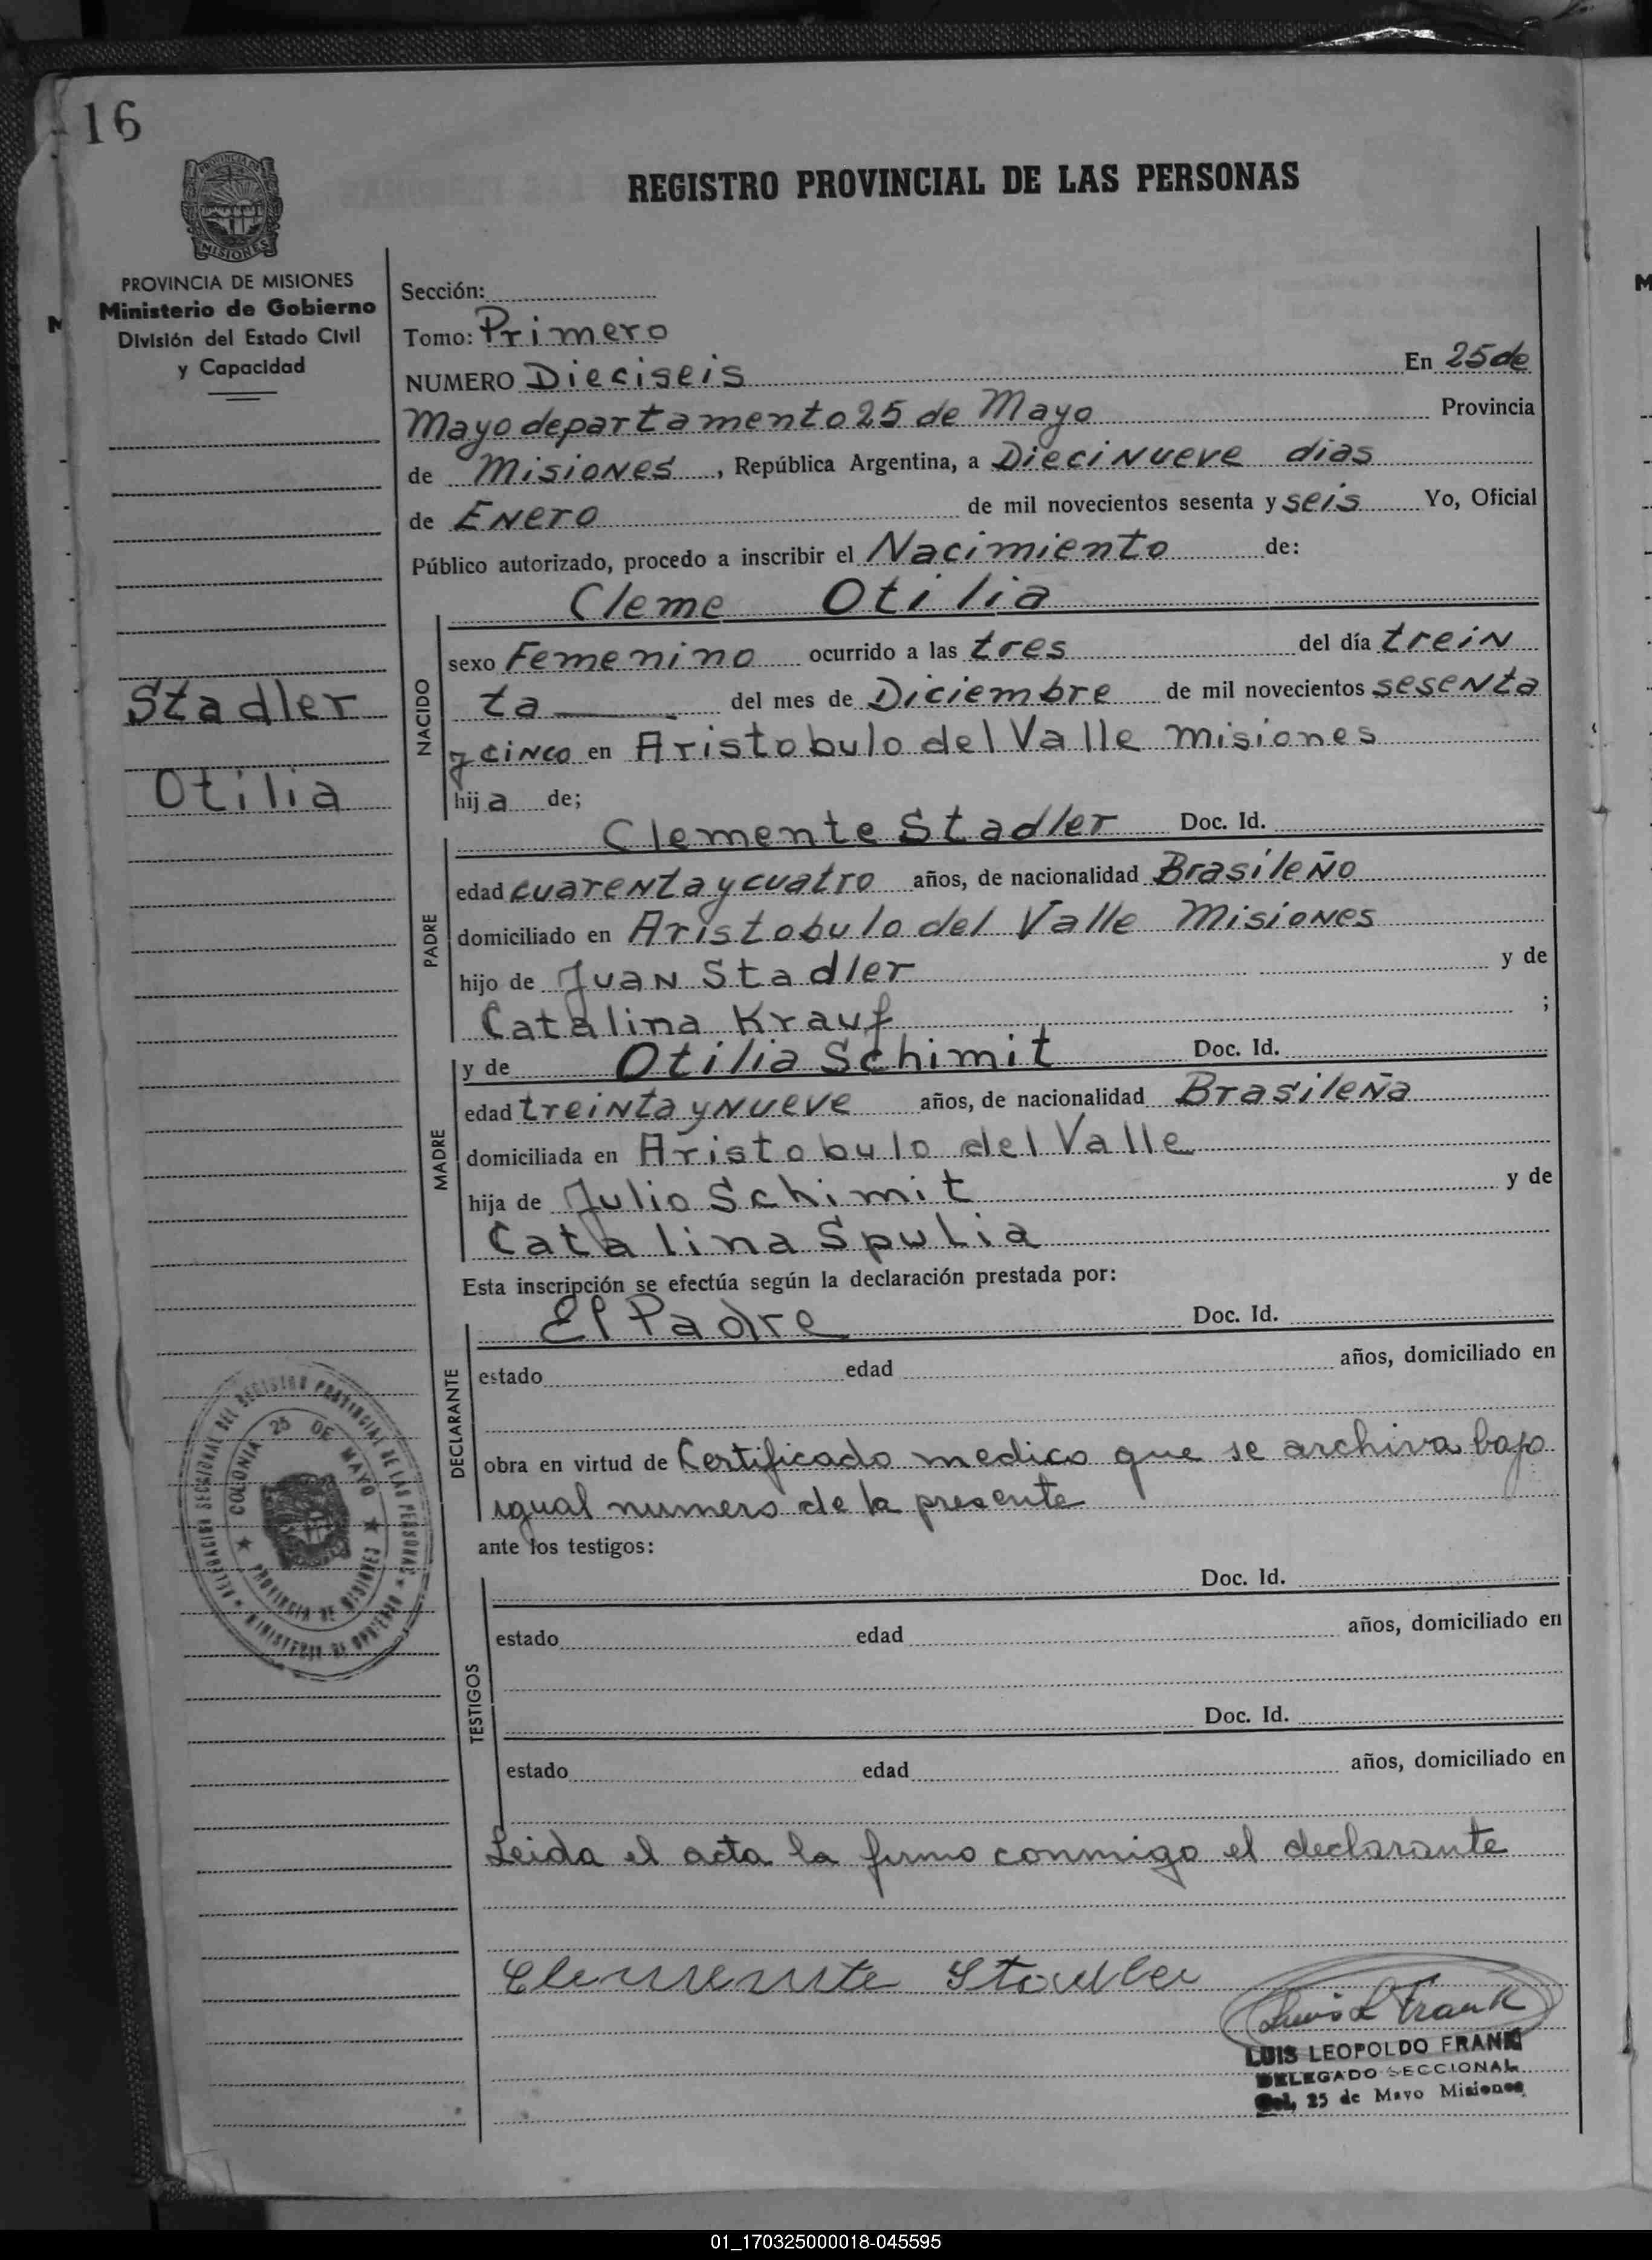 16
PROVINCIA DE
MISIONES
REGISTRO PROVINCIAL DE LAS PERSONAS
PROVINCIA DE MISIONES
Ministerio de Gobierno
División del Estado Civil
y Capacidad
Stadler
Otilia
Sección:
Tomo: Primero
NUMERO Dieciseis En 25 de
Mayo departamento 25 de Mayo Provincia
de Misiones, República Argentina, a Diecinueve dias
de Enero de mil novecientos sesenta y seis Yo, Oficial
Público autorizado, procedo a inscribir el Nacimiento de:
Cleme Otilia
NACIDO
sexo Femenino ocurrido a las tres del día trein
ta del mes de Diciembre de mil novecientos sesenta
y cinco en Aristobulo del Valle misiones
hija de;
PADRE
Clemente Stadler Doc. Id.
edad cuarenta y cuatro años, de nacionalidad Brasileño
domiciliado en Aristobulo del Valle Misiones
hijo de Juan Stadler y de
Catalina Krauf ;
MADRE
y de Otilia Schimit Doc. Id.
edad treinta y nueve años, de nacionalidad Brasileña
domiciliada en Aristobulo del Valle
hija de Julio Schimit y de
Catalina Spulia
Esta inscripción se efectúa según la declaración prestada por:
DECLARANTE
El Padre Doc. Id.
estado edad años, domiciliado en
obra en virtud de Certificado medico que se archiva bajo
igual numero de la presente
ante los testigos:
TESTIGOS
Doc. Id.
estado edad años, domiciliado en
Doc. Id.
estado edad años, domiciliado en
Leida el acta la firmo conmigo el declarante
Clemente Stadler
Luis L Frank
LUIS LEOPOLDO FRANK
DELEGADO SECCIONAL
Col. 25 de Mayo Misiones
DELEGACION SECCIONAL DEL REGISTRO PROVINCIAL DE LAS PERSONAS
MINISTERIO DE GOBIERNO
COLONIA 25 DE MAYO
PROVINCIA DE MISIONES
01_170325000018-045595